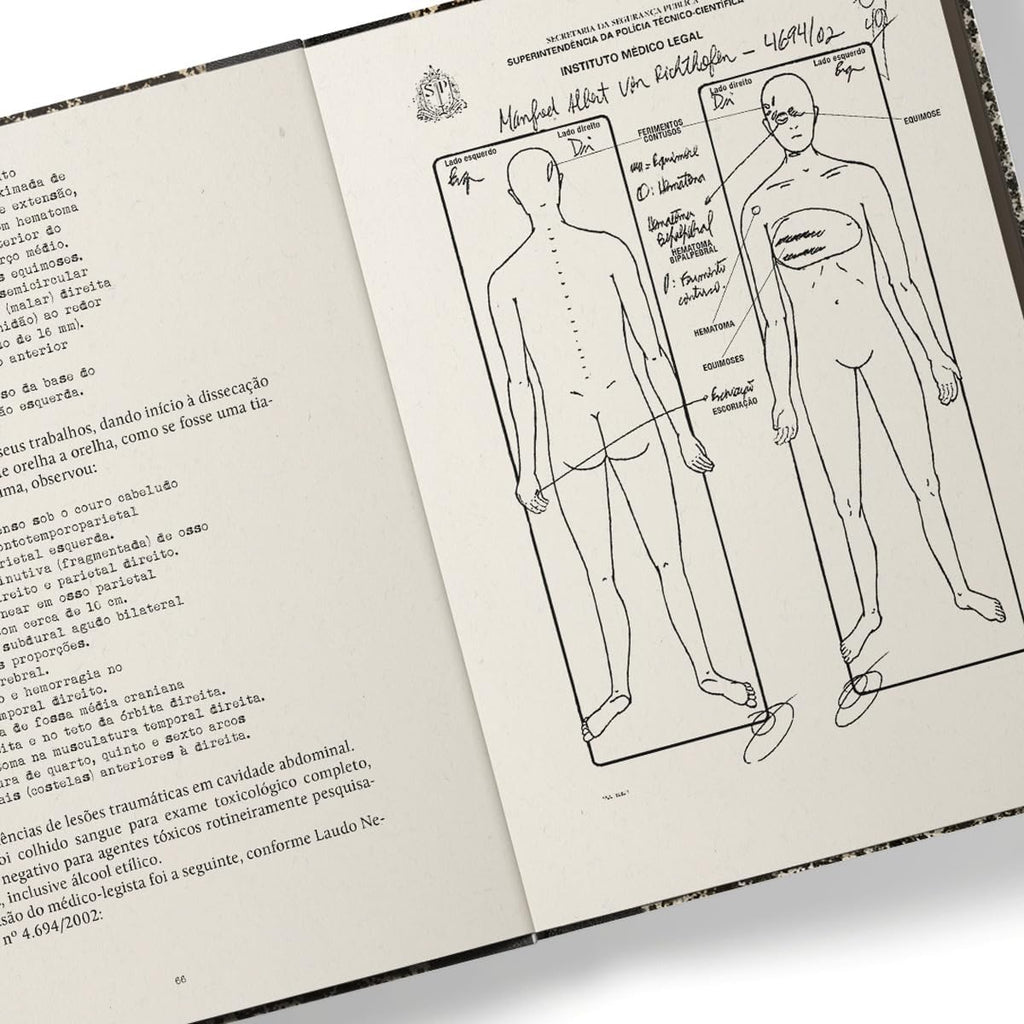 to
ximada de
e extensão,
om hematoma
terior do
rço médio.
s equimoses.
semicircular
(malar) direita
nidão) ao redor
o de 16 mm).
o anterior
so da base do
ão esquerda.
seus trabalhos, dando início à dissecação
e orelha a orelha, como se fosse uma tia-
ma, observou:
enso sob o couro cabeludo
ontotemporoparietal
rietal esquerda.
minutiva (fragmentada) de osso
ireito e parietal direito.
near em osso parietal
om cerca de 10 cm.
subdural agudo bilateral
s proporções.
rebral.
o e hemorragia no
mporal direito.
a de fossa média craniana
ita e no teto da órbita direita.
toma na musculatura temporal direita.
ura de quarto, quinto e sexto arcos
ais (costelas) anteriores à direita.
ências de lesões traumáticas em cavidade abdominal.
oi colhido sangue para exame toxicológico completo,
negativo para agentes tóxicos rotineiramente pesquisa-
, inclusive álcool etílico.
são do médico-legista foi a seguinte, conforme Laudo Ne-
nº 4.694/2002:
66
SECRETARIA DA SEGURANÇA PUBLICA
SUPERINTENDÊNCIA DA POLÍCIA TÉCNICO-CIENTÍFICA
INSTITUTO MÉDICO LEGAL
Manfred Albert Von Richthofen - 4694/02
SP
Lado esquerdo
Esq
Lado direito
Dir
FERIMENTOS
CONTUSOS
= Equimose
: Hematoma
Hematoma
Bipalpebral
HEMATOMA
BIPALPEBRAL
: Ferimento
contuso.
HEMATOMA
EQUIMOSES
Escoriação
ESCORIAÇÃO
Lado direito
Dir
Lado esquerdo
Esq
EQUIMOSE